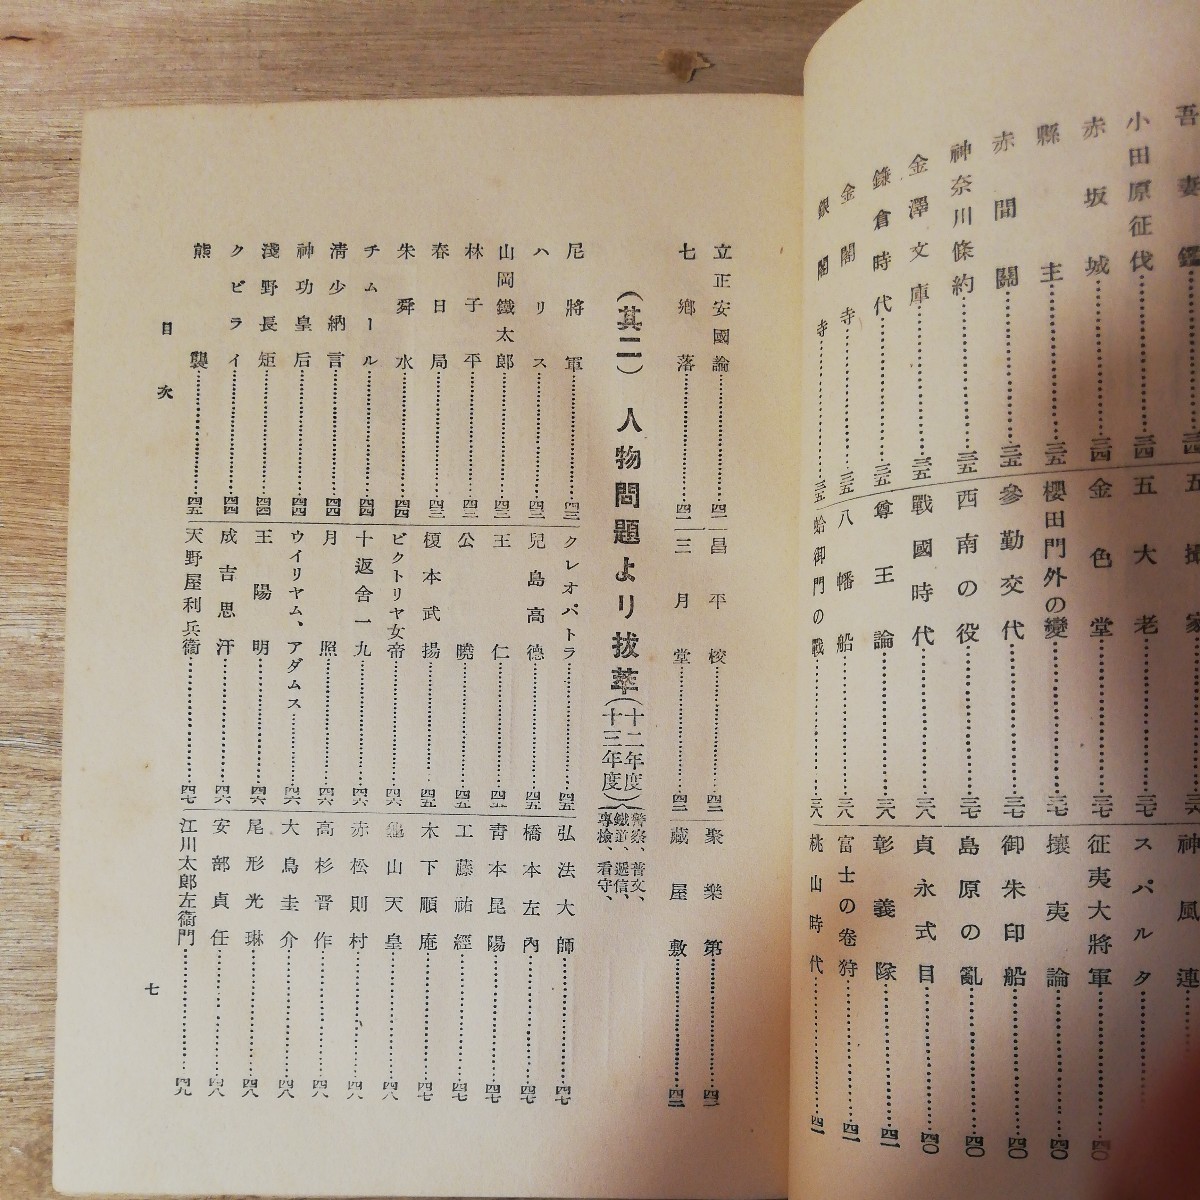 吾妻鏡……三四
小田原征伐……三四
赤坂城……三四
縣主……三五
赤間關……三五
神奈川條約……三五
金澤文庫……三五
鎌倉時代……三五
金閣寺……三五
銀閣寺……三五
五攝家……三六
五大老……三七
金色堂……三七
櫻田門外の變……三七
參勤交代……三七
西南の役……三七
戰國時代……三八
尊王論……三八
八幡船……三八
蛤御門の戰……三八
神風連
スパルタ
征夷大將軍……四〇
攘夷論……四〇
御朱印船……四〇
島原の亂……四〇
貞永式目……四〇
彰義隊……四一
富士の卷狩……四一
桃山時代……四一
立正安國論……四一
七鄕落……四二
昌平校……四二
三月堂……四二
聚樂第……四二
藏屋敷……四二
(其二) 人物問題より拔萃(十二年度十三年度)(警察、普文、鐵道、遞信、專檢、看守、
尼將軍……四三
ハリス……四三
山岡鐵太郎……四三
林子平……四三
春日局……四三
朱舜水……四四
チムール……四四
淸少納言……四四
神功皇后……四四
淺野長矩……四四
クビライ……四四
熊襲……四五
クレオパトラ……四五
兒島高德……四五
王仁……四五
公曉……四五
榎本武揚……四五
ビクトリヤ女帝……四六
十返舍一九……四六
月照……四六
ウイリヤム、アダムス……四六
王陽明……四六
成吉思汗……四六
天野屋利兵衞……四七
弘法大師……四七
橋本左內……四七
靑本昆陽……四七
工藤祐經……四七
木下順庵……四七
龜山天皇……四八
赤松則村……四八
高杉晋作……四八
大鳥圭介……四八
尾形光琳……四八
安部貞任……四八
江川太郎左衞門……四九
目次
七